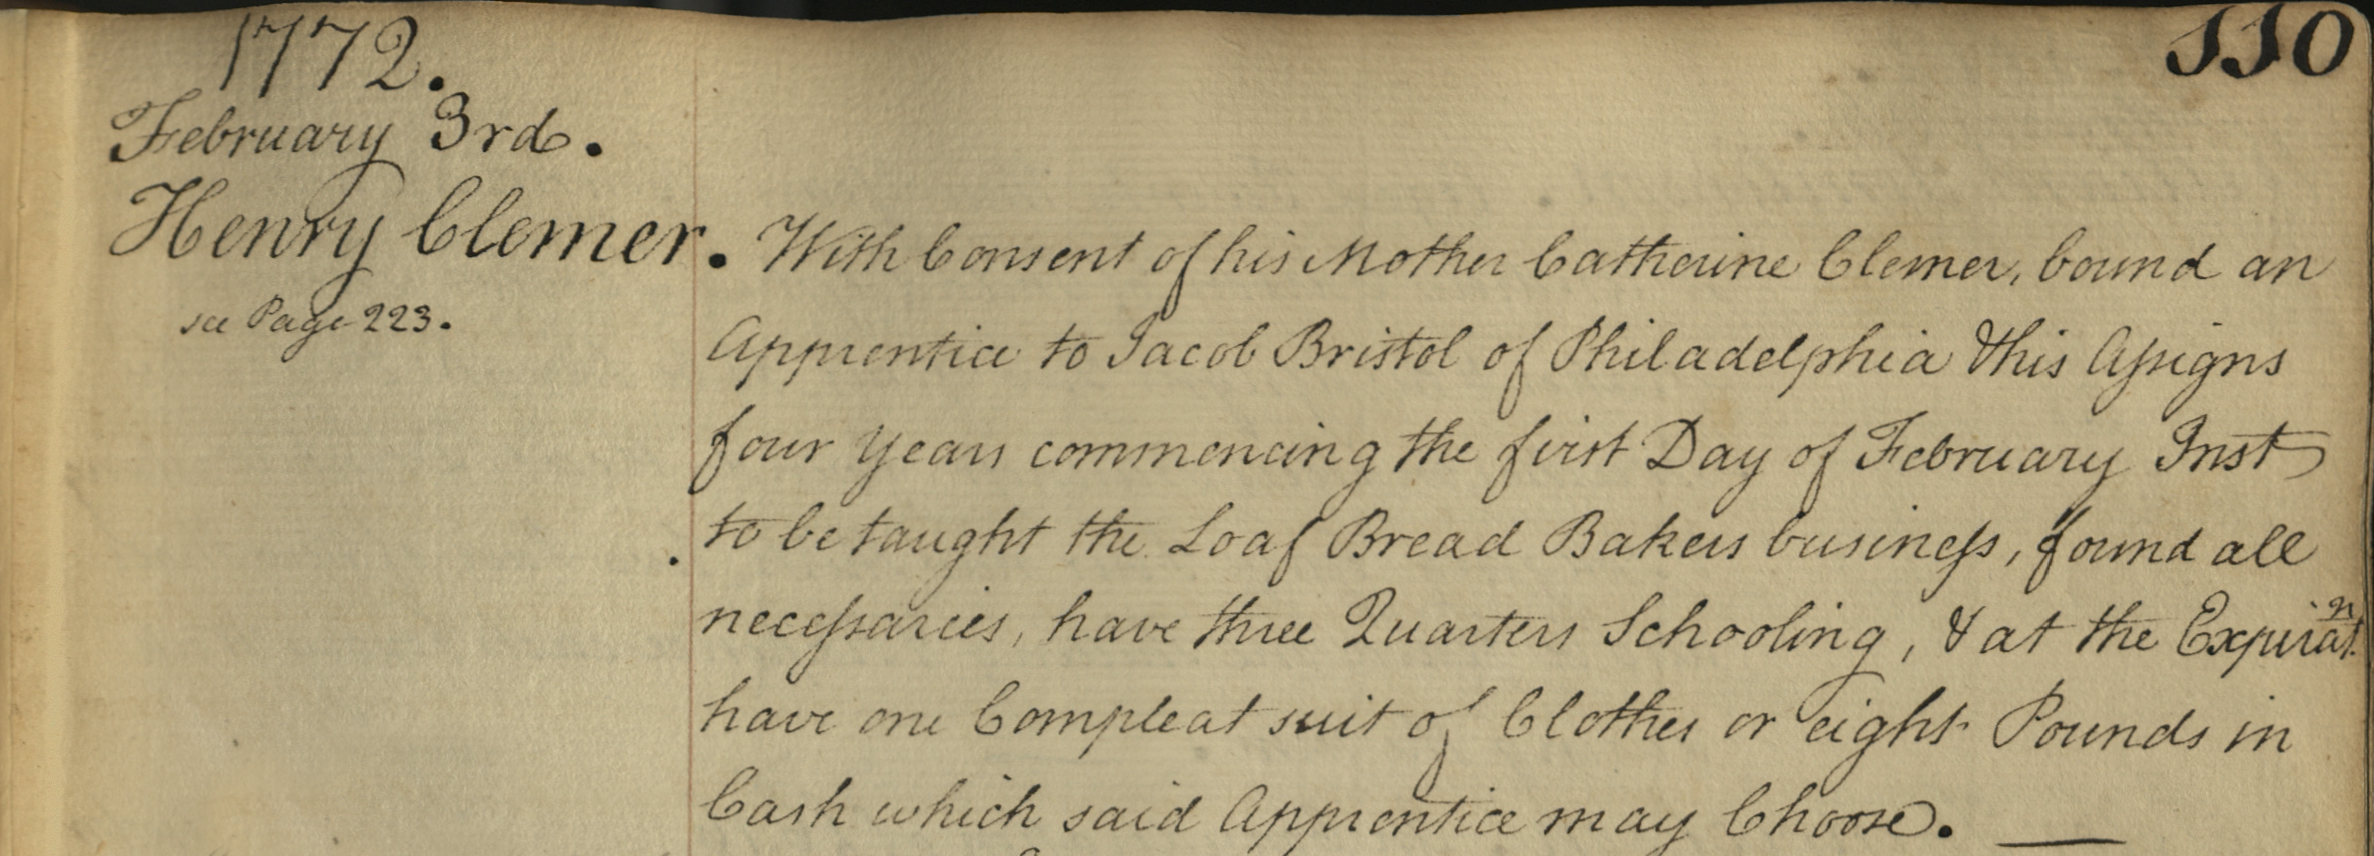 1772.
110
February 3rd.
Henry Clemer. With Consent of his Mother Catherine Clemer, bound an
see Page 223.
Apprentice to Jacob Bristol of Philadelphia & his Assigns
four Years commencing the first Day of February Inst
to be taught the Loaf Bread Bakers business, found all
necessaries, have three Quarters Schooling, & at the Expirat.n
have one Compleat suit of Clothes or eight Pounds in
Cash which said Apprentice may Choose.